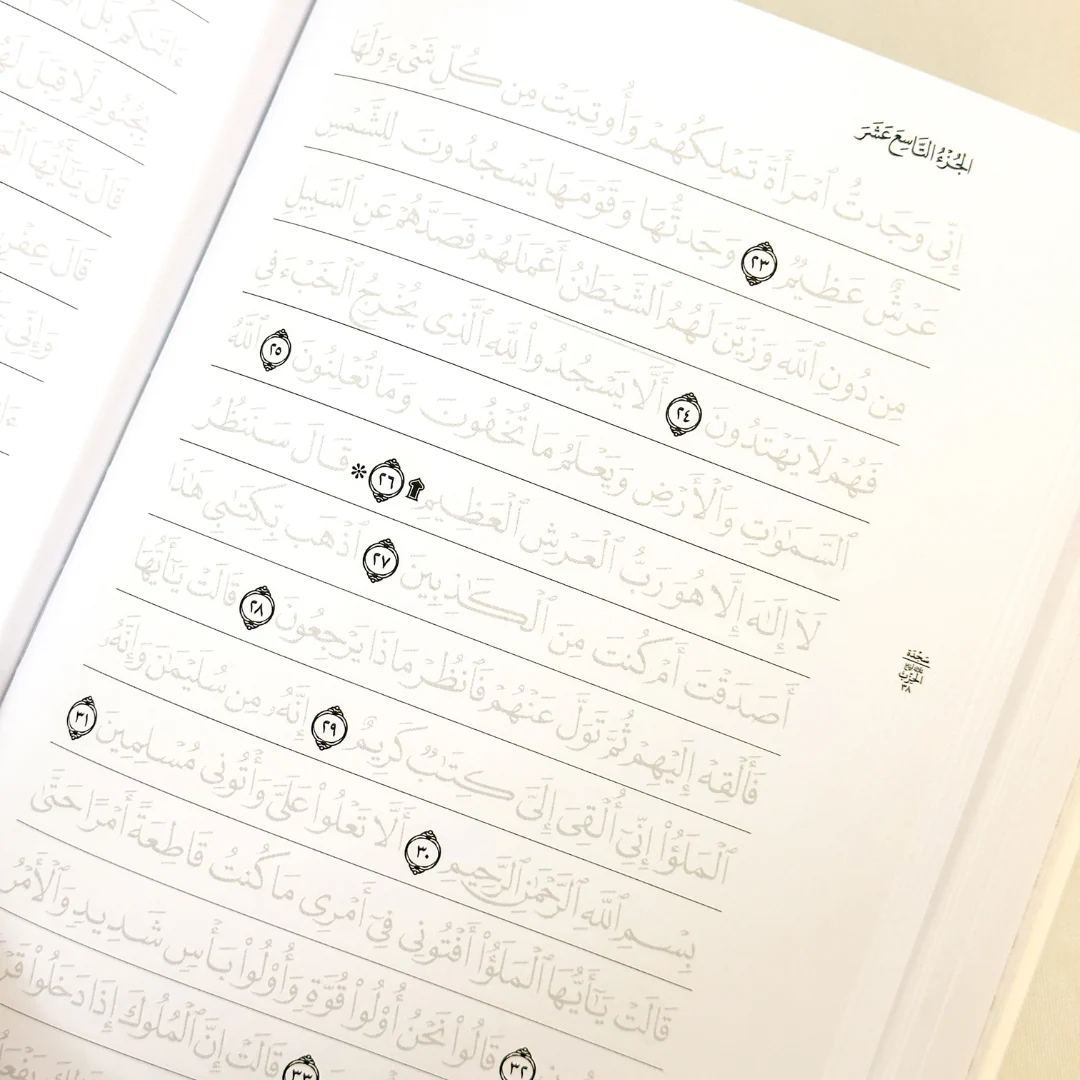 الجزء التاسع عشر
إِنِّي وَجَدتُّ ٱمْرَأَةً تَمْلِكُهُمْ وَأُوتِيَتْ مِن كُلِّ شَيْءٍ وَلَهَا
عَرْشٌ عَظِيمٌ ٢٣ وَجَدتُّهَا وَقَوْمَهَا يَسْجُدُونَ لِلشَّمْسِ
مِن دُونِ ٱللَّهِ وَزَيَّنَ لَهُمُ ٱلشَّيْطَٰنُ أَعْمَٰلَهُمْ فَصَدَّهُمْ عَنِ ٱلسَّبِيلِ
فَهُمْ لَا يَهْتَدُونَ ٢٤ أَلَّا يَسْجُدُوا۟ لِلَّهِ ٱلَّذِي يُخْرِجُ ٱلْخَبْءَ فِي
ٱلسَّمَٰوَٰتِ وَٱلْأَرْضِ وَيَعْلَمُ مَا تُخْفُونَ وَمَا تُعْلِنُونَ ٢٥ ٱللَّهُ
لَآ إِلَٰهَ إِلَّا هُوَ رَبُّ ٱلْعَرْشِ ٱلْعَظِيمِ ٢٦ * قَالَ سَنَنظُرُ
أَصَدَقْتَ أَمْ كُنتَ مِنَ ٱلْكَٰذِبِينَ ٢٧ ٱذْهَب بِّكِتَٰبِي هَٰذَا
فَأَلْقِهْ إِلَيْهِمْ ثُمَّ تَوَلَّ عَنْهُمْ فَٱنظُرْ مَاذَا يَرْجِعُونَ ٢٨ قَالَتْ يَٰٓأَيُّهَا
ٱلْمَلَؤُا۟ إِنِّيٓ أُلْقِيَ إِلَيَّ كِتَٰبٌ كَرِيمٌ ٢٩ إِنَّهُۥ مِن سُلَيْمَٰنَ وَإِنَّهُۥ
بِسْمِ ٱللَّهِ ٱلرَّحْمَٰنِ ٱلرَّحِيمِ ٣٠ أَلَّا تَعْلُوا۟ عَلَيَّ وَأْتُونِي مُسْلِمِينَ ٣١
قَالَتْ يَٰٓأَيُّهَا ٱلْمَلَؤُا۟ أَفْتُونِي فِيٓ أَمْرِي مَا كُنتُ قَاطِعَةً أَمْرًا حَتَّىٰ
قَالُوا۟ نَحْنُ أُو۟لُوا۟ قُوَّةٍ وَأُو۟لُوا۟ بَأْسٍ شَدِيدٍ وَٱلْأَمْرُ
٣٢ قَالَتْ إِنَّ ٱلْمُلُوكَ إِذَا دَخَلُوا۟
٣٣
سجدة
الحزب
٣٨
بِجُنُودٍ لَّا قِبَلَ
قَالَ يَٰٓأَيُّهَا
قَالَ
وَإِنِّي